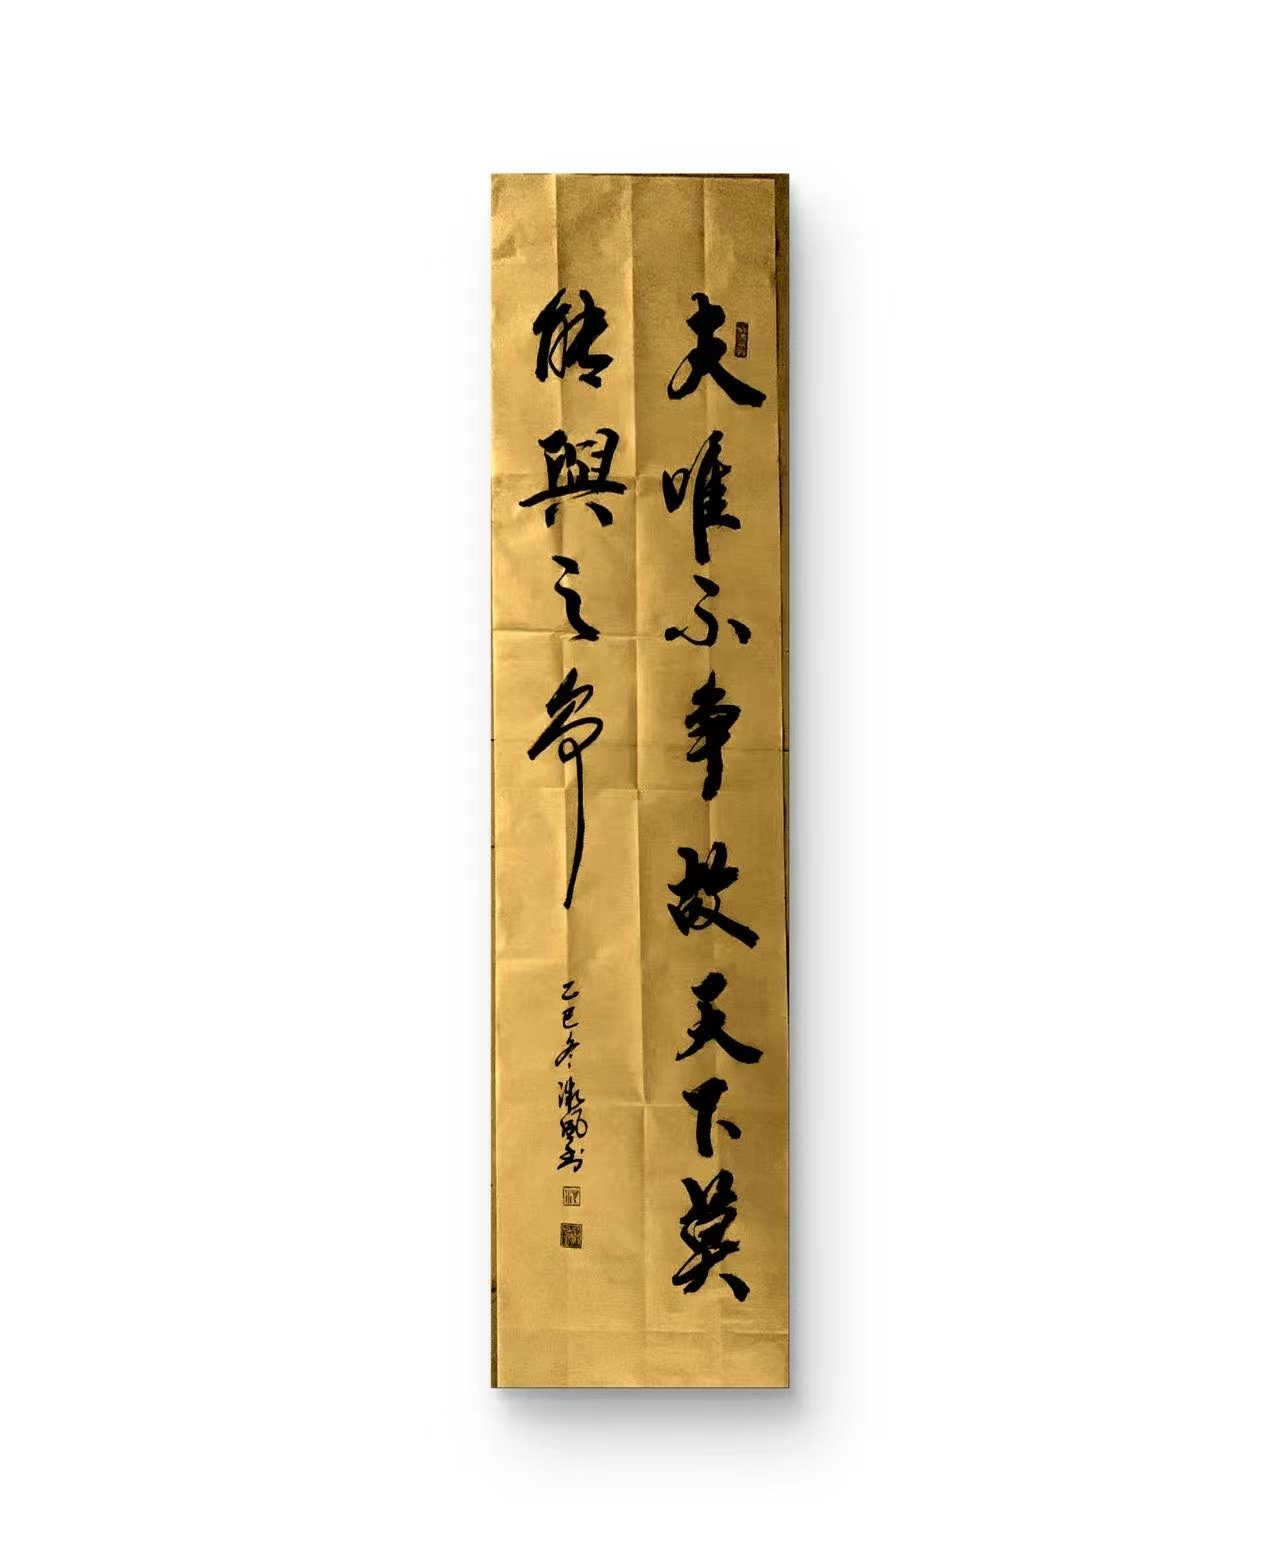 夫唯不争故天下莫
能與之争
乙巳冬澂風书